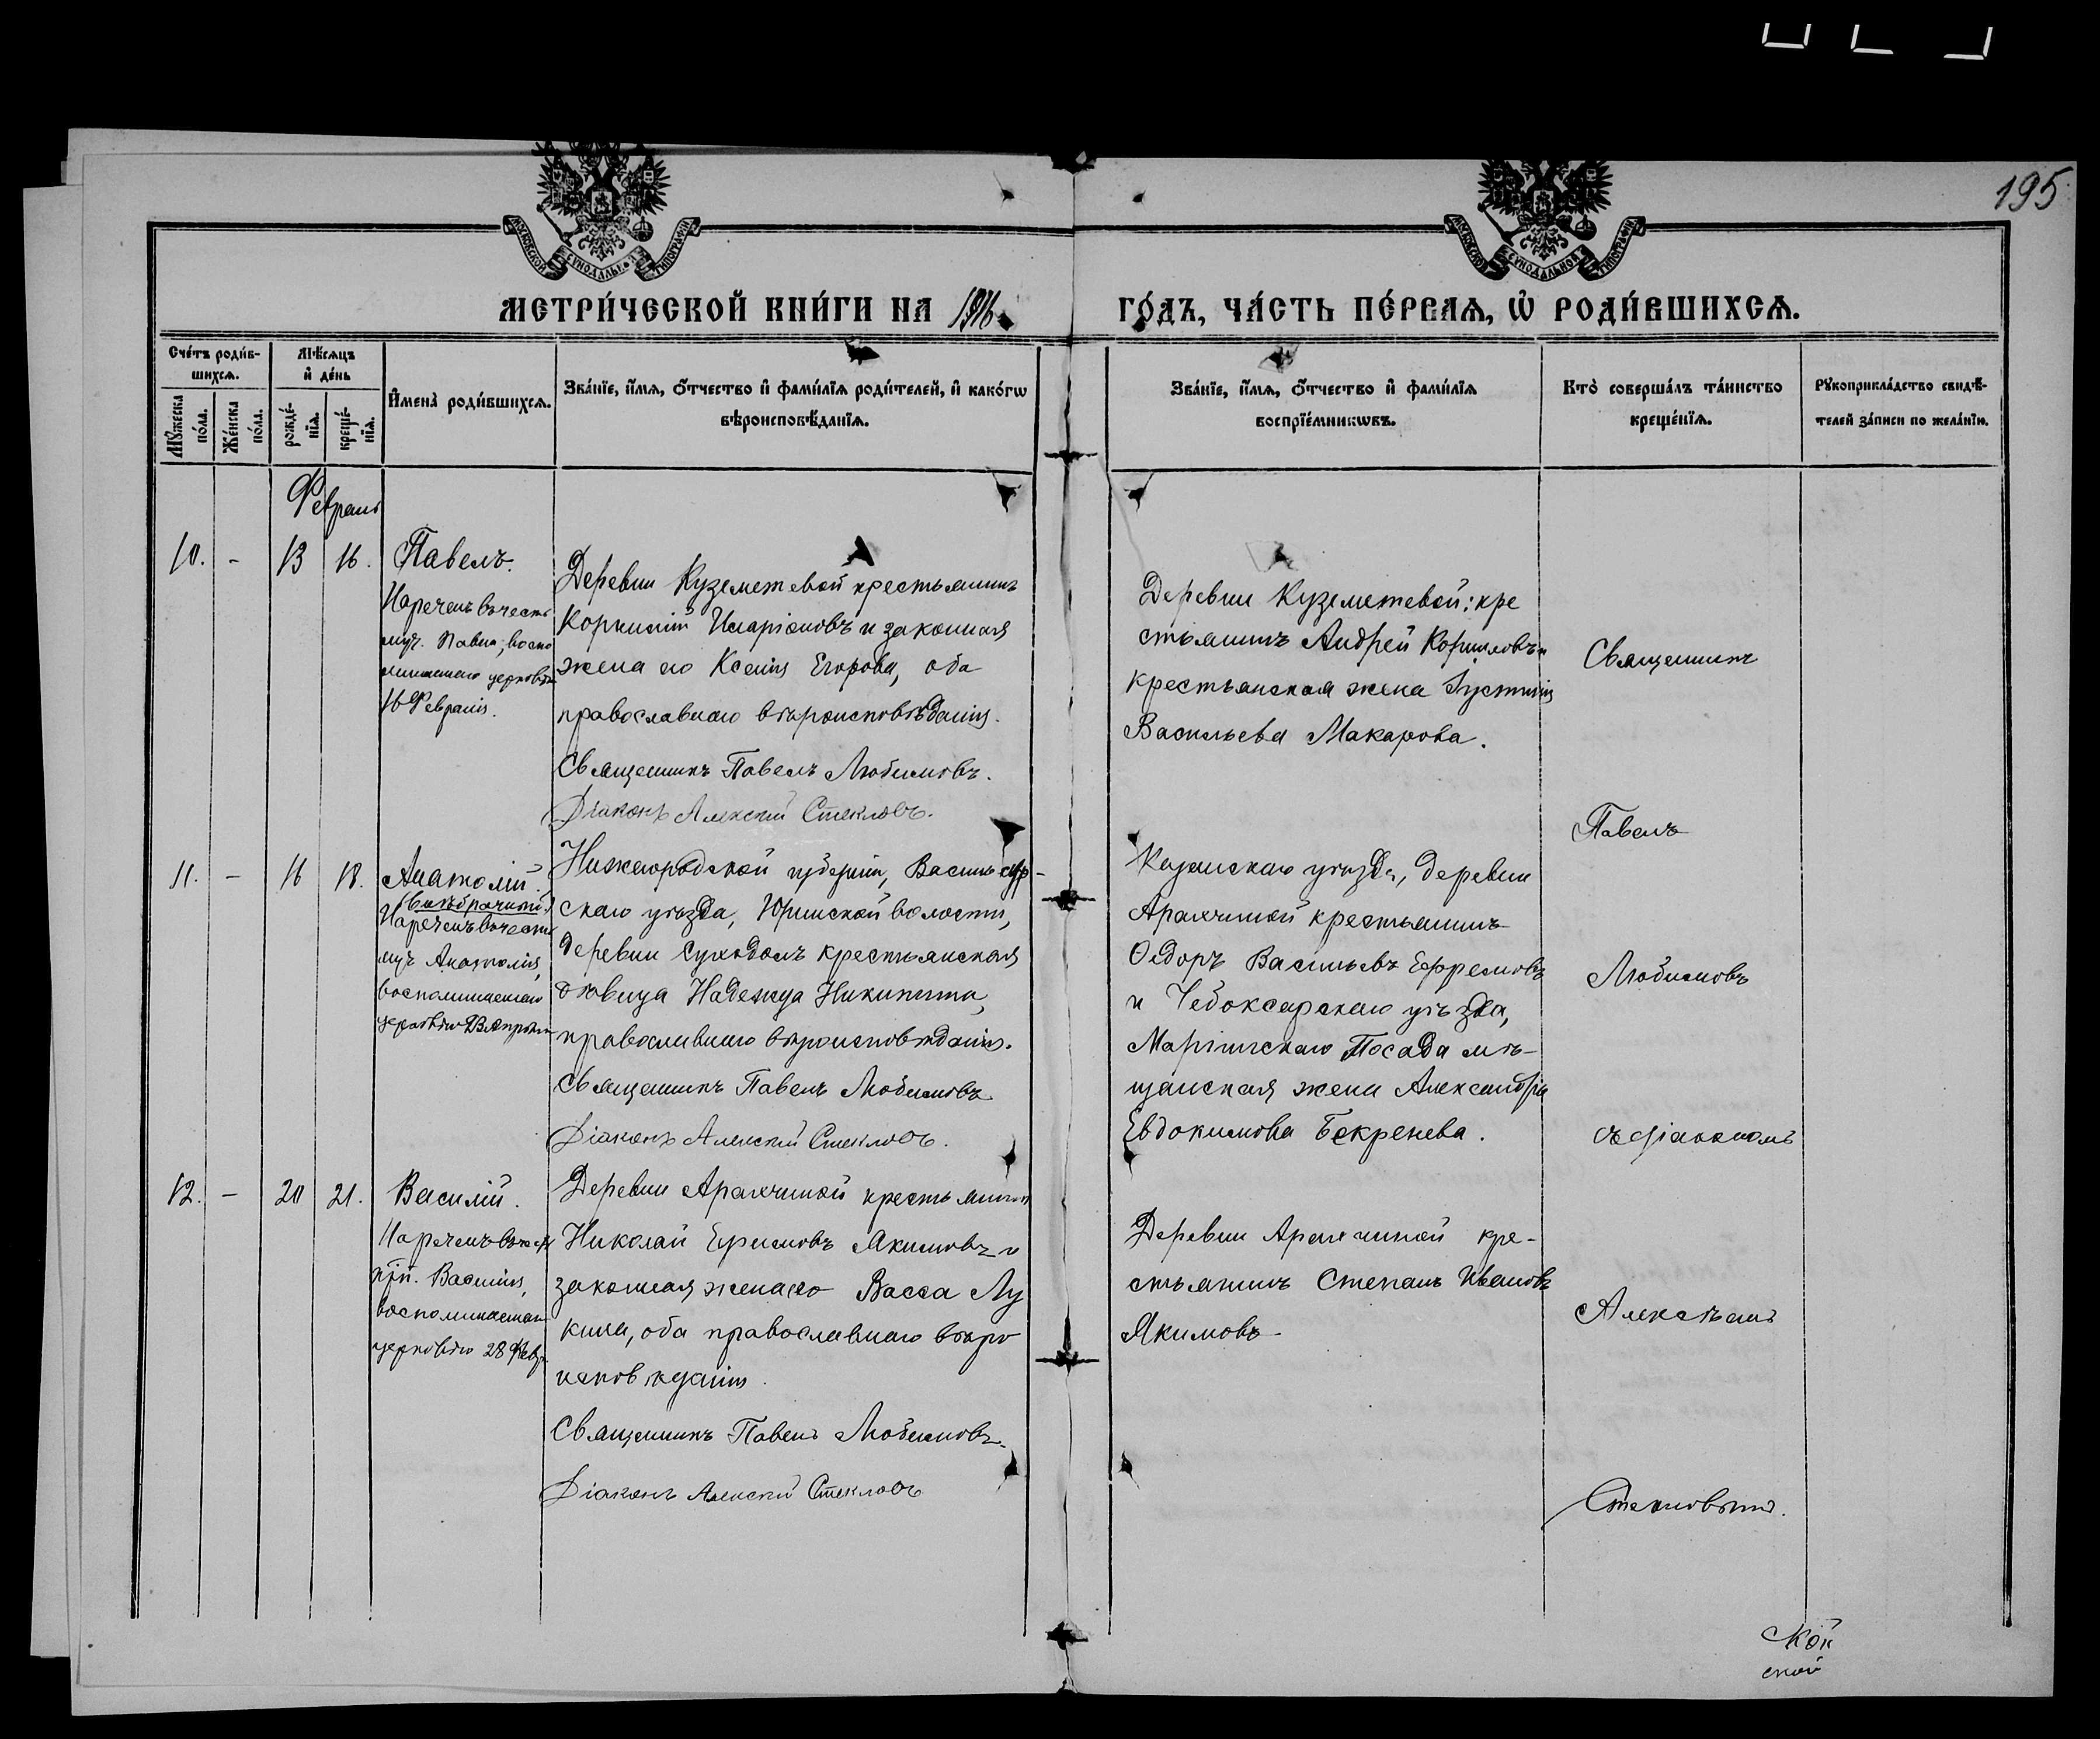 195
МОСКОВСКОЙ СУНОДАЛЬНОЙ ТИПОГРАФІИ
МОСКОВСКОЙ СУНОДАЛЬНОЙ ТИПОГРАФІИ
МЕТРИ́ЧЕСКОЙ КНИ́ГИ НА 1916
ГО́ДЪ, ЧА́СТЬ ПЕ́РВАѦ, Ѡ РОДИ́ВШИХСѦ.
Сче́тъ роди́в-
шихсѧ.
Мѣ́сѧцъ
и҆ де́нь
Мꙋ́жеска
по́ла.
Же́нска
по́ла.
рожде́-
нїѧ.
креще́-
нїѧ.
И҆мена̀ роди́вшихсѧ.
Зва́нїе, и҆́мѧ, ѻ҆́тчество и҆ фами́лїѧ роди́телей, и҆ како́гѡ
вѣроисповѣ́данїѧ.
Зва́нїе, и҆́мѧ, ѻ҆́тчество и҆ фами́лїѧ
воспрїе́мникѡвъ.
Кто̀ соверша́лъ та́инство
креще́нїѧ.
Рꙋкоприкла́дство свидѣ́-
телей за́писи по жела́нїю.
Февраль
10. - 13 16.
Павелъ.
Нареченъ въ честь
муч. Павла, воспо
минаемаго церковью
16 Февраля.
Деревни Куземетевой крестьянинъ
Корнилій Иларіоновъ и законная
жена его Ксенія Егорова, оба
православнаго вѣроисповѣданія.
Священникъ Павелъ Любимовъ.
Діаконъ Алексій Стекловъ.
Деревни Куземетевой: кре
стьянинъ Андрей Корниловъ и
крестьянская жена Іустинія
Васильева Макарова.
Священникъ
Павелъ
Любимовъ
съ діакономъ
Алексѣемъ
Стекловымъ.
11. - 16 18.
Анатолій.
(внѣбрачный)
Нареченъ въ честь
муч Анатолія,
воспоминаемаго
церковію 23 Апрѣля
Нижегородской губерніи, Василь сур-
скаго уѣзда, Юринской волости,
деревни Суходолъ крестьянская
дѣвица Надежда Никитина,
православнаго вѣроисповѣданія.
Священникъ Павелъ Любимовъ
Діаконъ Алексій Стекловъ.
Казанскаго уѣзда, деревни
Аракчиной крестьянинъ
Ѳедоръ Васильевъ Ефремовъ
и Чебоксарскаго уѣзда,
Маріинскаго Посада мѣ-
щанская жена Александра
Евдокимова Бекренева.
12. - 20 21.
Василій.
Нареченъ въ честь
прп. Василія,
воспоминаемаго
церковію 28 Февр.
Деревни Аракчиной крестьянинъ
Николай Ефимовъ Якимовъ и
законная жена его Васса Лу
кина, оба православнаго вѣро
исповѣданія.
Священникъ Павелъ Любимовъ.
Діаконъ Алексій Стекловъ
Деревни Аракчиной кре-
стьянинъ Степанъ Ивановъ
Якимовъ
ской